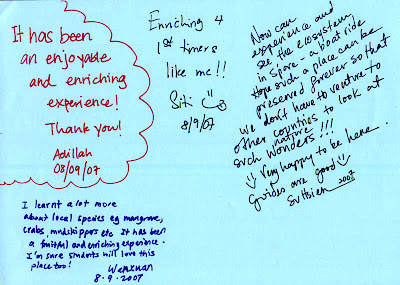 It has been
an enjoyable
and enriching
experience!
Thank you!
Adillah
08/09/07
Enriching 4
1st timers
like me!!
Siti
8/9/07
Now can
experience and
see the ecosystem
in S'pore - a boat ride
Hope such a place can be
preserved forever so that
we don't have to venture to
other countries to look at
such nature wonders!!!
Very happy to be here.
Guides are good
Su Hsien 2007
I learnt a lot more
about local species eg mangrove,
crabs, mudskippers etc It has been
a fruitful and enriching experience.
I'm sure students will love this
place too!
Wenxuan
8.9.2007